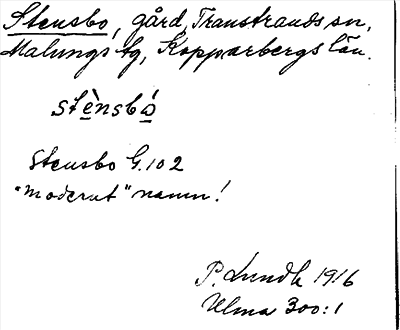 Stensbo, gård, Transtrands sn,
Malungs tg, Kopparbergs län.
stènsbó
Stensbo G.102
"modernt" namn!
P. Lundh 1916
Ulma 300:1